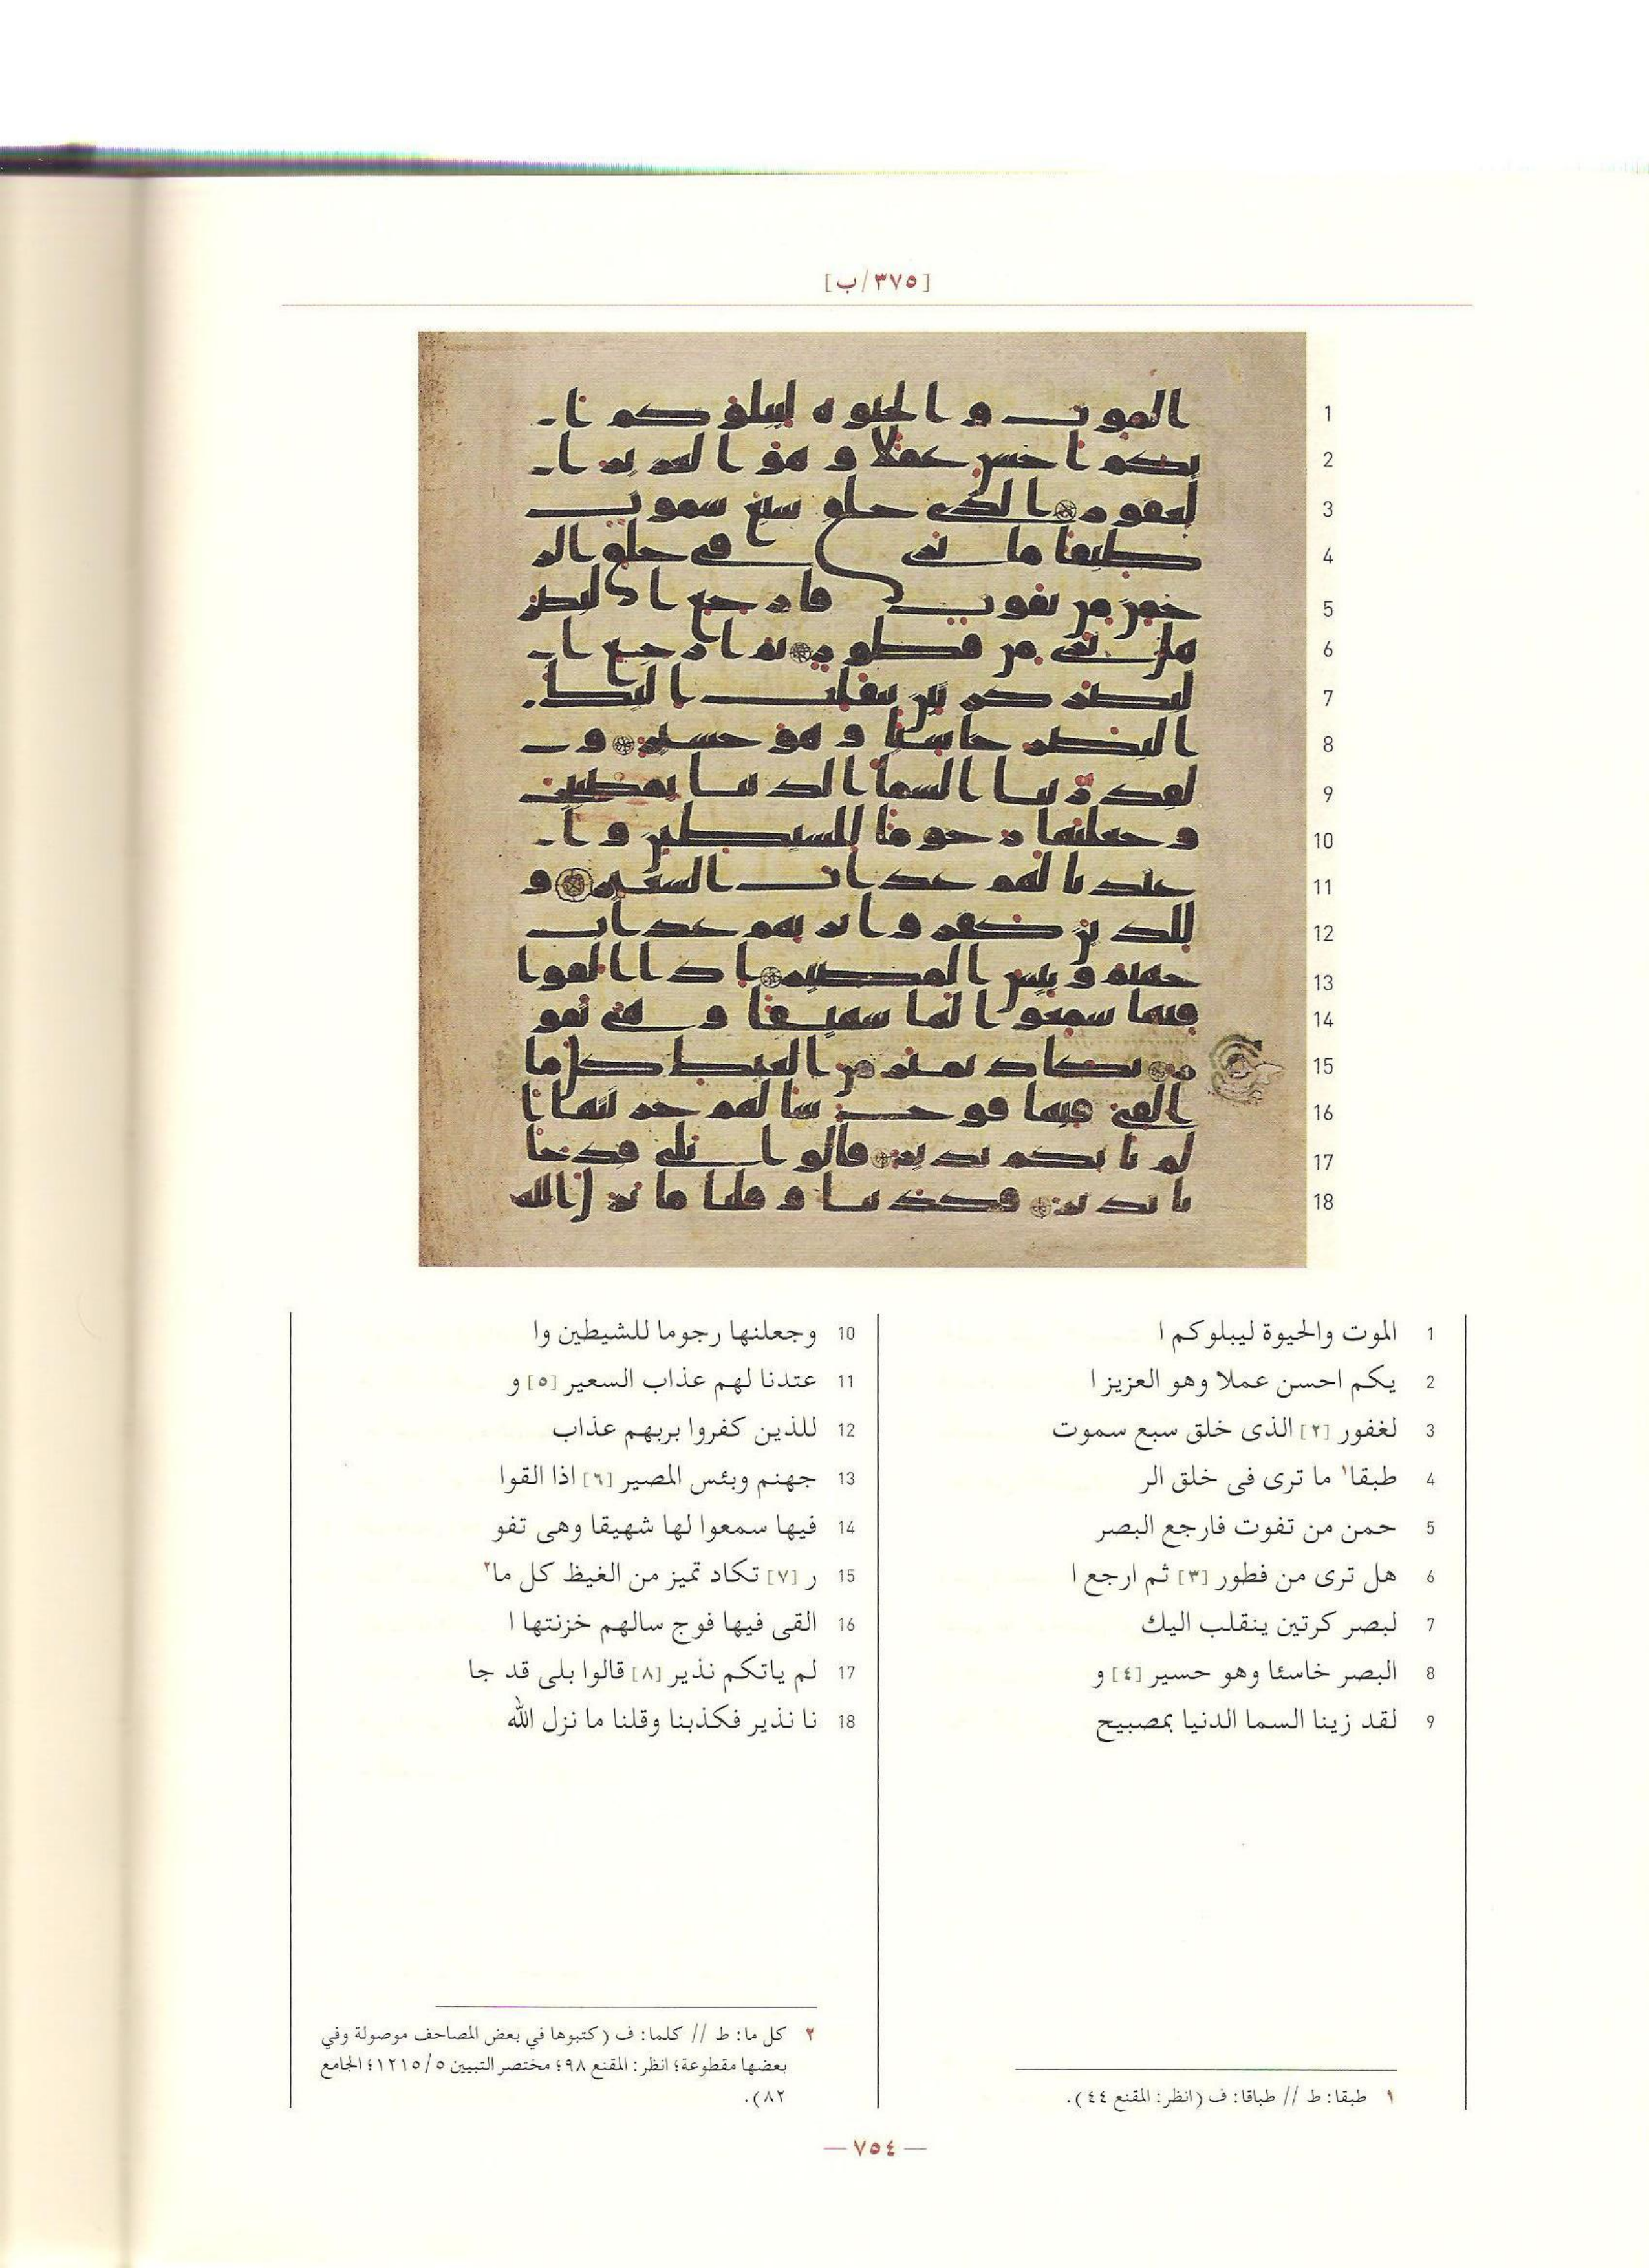 [٣٧٥/ب]
1 الموت والحيوة ليبلوكم ا
2 يكم احسن عملا وهو العزيز ا
3 لغفور [٢] الذى خلق سبع سموت
4 طبقا١ ما ترى فى خلق الر
5 حمن من تفوت فارجع البصر
6 هل ترى من فطور [٣] ثم ارجع ا
7 لبصر كرتين ينقلب اليك
8 البصر خاسئا وهو حسير [٤] و
9 لقد زينا السما الدنيا بمصبيح
10 وجعلنها رجوما للشيطين وا
11 عتدنا لهم عذاب السعير [٥] و
12 للذين كفروا بربهم عذاب
13 جهنم وبئس المصير [٦] اذا القوا
14 فيها سمعوا لها شهيقا وهى تفو
15 ر [٧] تكاد تميز من الغيظ كل ما٢
16 القى فيها فوج سالهم خزنتها ا
17 لم ياتكم نذير [٨] قالوا بلى قد جا
18 نا نذير فكذبنا وقلنا ما نزل الله
١ طبقا: ط // طباقا: ف (انظر: المقنع ٤٤).
٢ كل ما: ط // كلما: ف (كتبوها في بعض المصاحف موصولة وفي
بعضها مقطوعة؛ انظر: المقنع ٩٨؛ مختصر التبيين ١٢١٥/٥؛ الجامع
٨٢).
— ٧٥٤ —